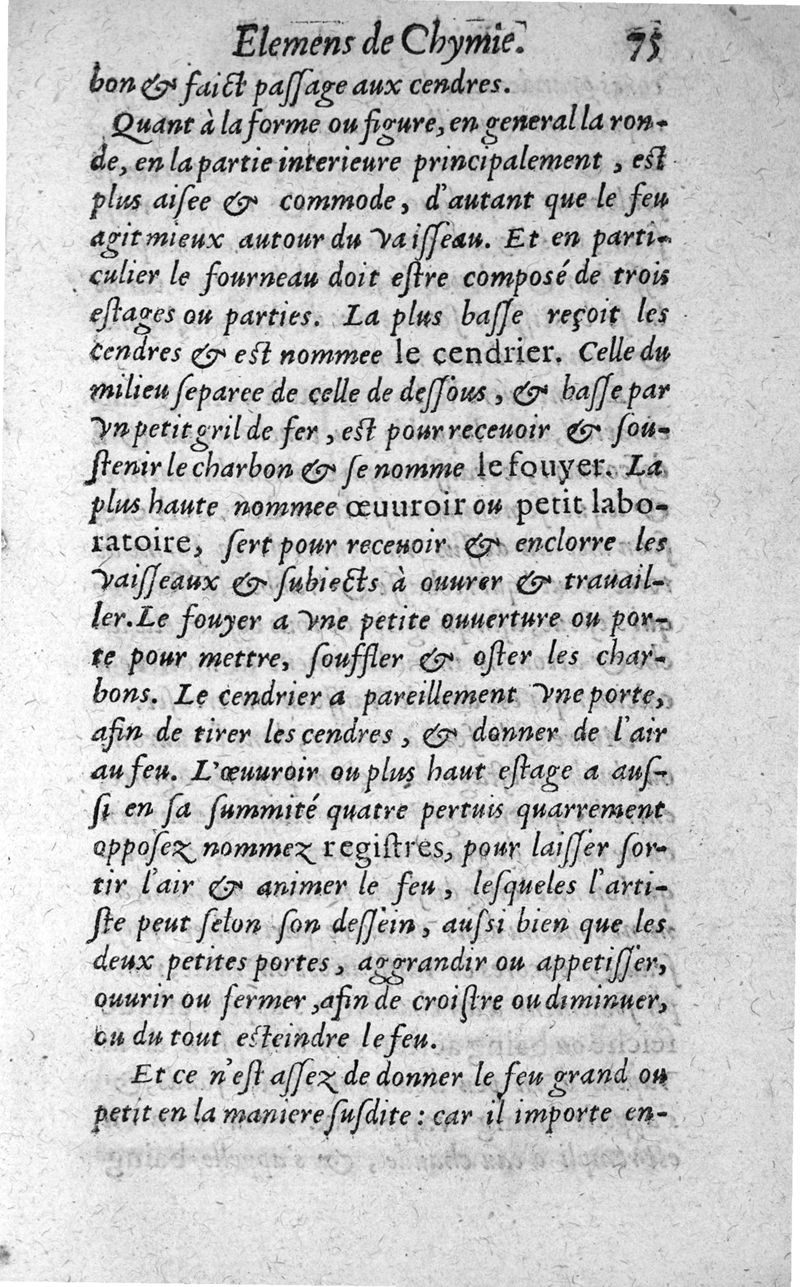 Elemens de Chymie. 75
bon & faict paſſage aux cendres.
Quant à la forme ou figure, en general la ron-
de, en la partie interieure principalement , eſt
plus aiſee & commode, d'autant que le feu
agit mieux autour du vaiſſeau. Et en parti-
culier le fourneau doit eſtre composé de trois
eſtages ou parties. La plus baſſe reçoit les
cendres & eſt nommee le cendrier. Celle du
milieu ſeparee de celle de deſſous, & baſſe par
vn petit gril de fer, eſt pour receuoir & ſou-
ſtenir le charbon & ſe nomme le fouyer. La
plus haute nommee œuuroir ou petit labo-
ratoire, ſert pour receuoir & enclorre les
vaiſſeaux & ſubiects à ouurer & trauail-
ler. Le fouyer a vne petite ouuerture ou por-
te pour mettre, ſouffler & oſter les char-
bons. Le cendrier a pareillement vne porte,
afin de tirer les cendres, & donner de l'air
au feu. L'œuuroir ou plus haut eſtage a auſ-
ſi en sa ſummité quatre pertuis quarrement
oppoſez nommez regiſtres, pour laiſſer ſor-
tir l'air & animer le feu, leſqueles l'arti-
ſte peut ſelon ſon deſſein, auſsi bien que les
deux petites portes, aggrandir ou appetiſſer,
ouurir ou fermer, afin de croiſtre ou diminuer,
ou du tout eſteindre le feu.
Et ce n'eſt aſſez de donner le feu grand ou
petit en la maniere ſuſdite : car il importe en-